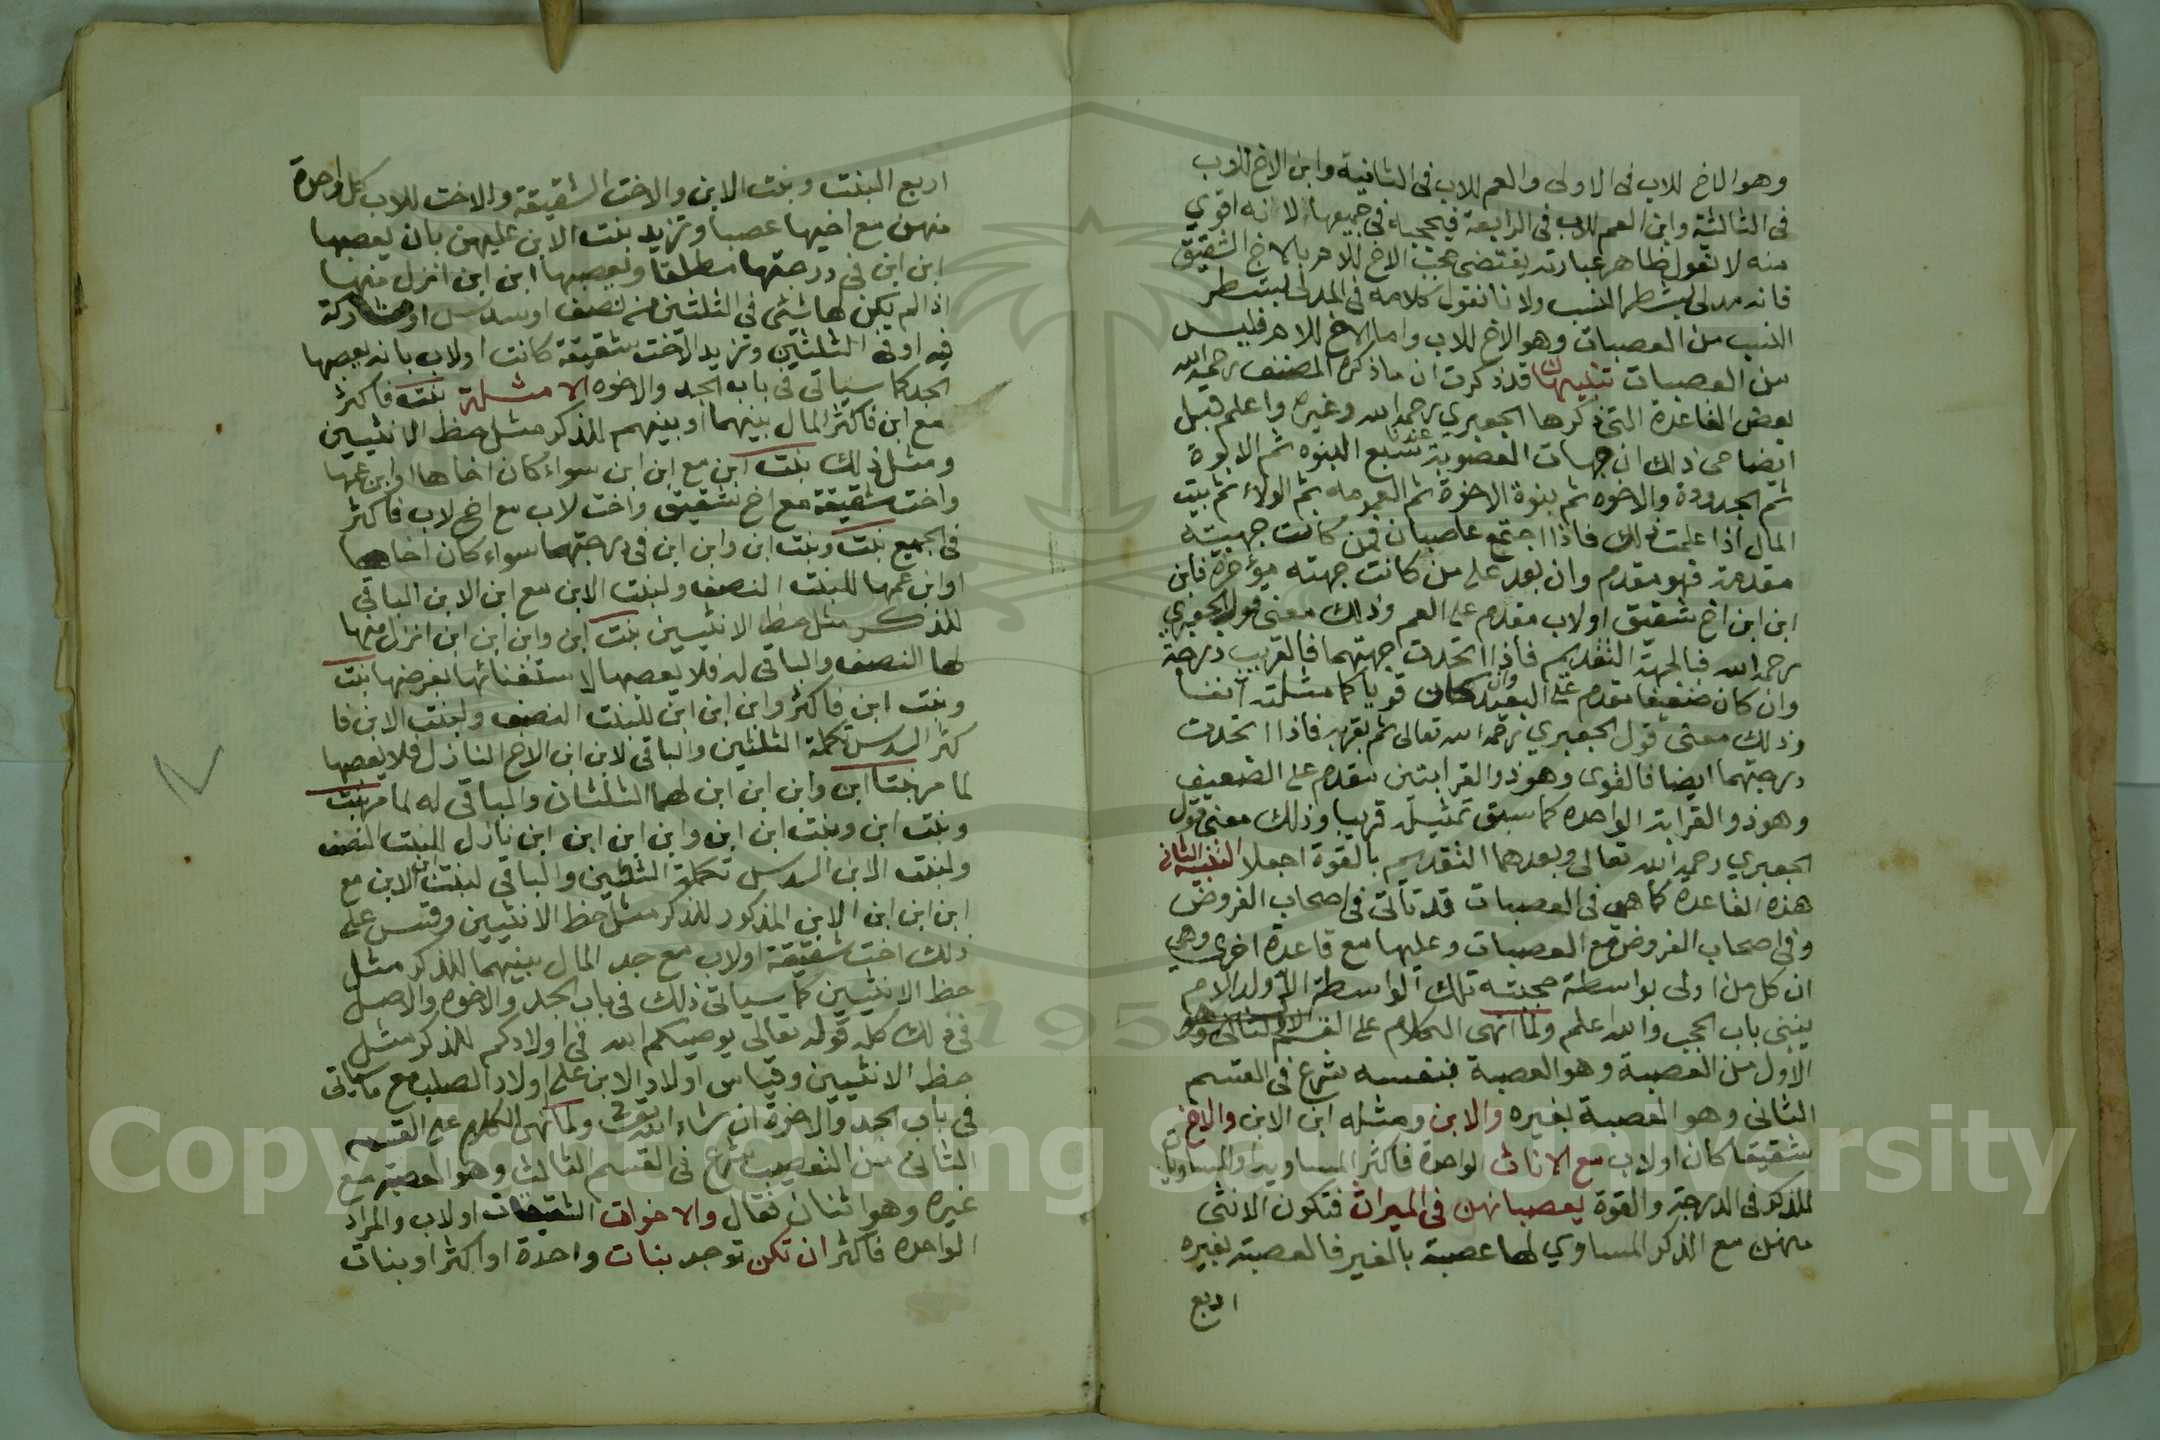 وهو الاخ للاب في الاولى والعم للاب في الثانية وابن الاخ للاب
في الثالثة وابن العم للاب في الرابعة فيحجبه في جميعها لانه اقوي
منه لا تقول ظاهر عبارته يقتضي حجب الاخ للام بالاخ الشقيق
فانه مدلى بشطر النسب ولانا نقول كلامه في المدلى بشطر
النسب من العصبات وهو الاخ للاب واما الاخ للام فليس
من العصبات تنبيهان قد ذكرت ان ما ذكره المصنف رحمه الله
بعض القاعدة التي ذكرها الجعبري رحمه الله وغيره واعلم قبل
ايضاحي ذلك ان جهات العصوبة عندنا سبع البنوه ثم الابوة
ثم الجدودة والاخوه ثم بنوة الاخوة ثم العمومه ثم الولاء ثم بيت
المال اذا علمت ذلك فاذا اجتمع عاصبان فمن كانت جهته
مقدمة فهو مقدم وان بعد على من كانت جهته مؤخرة فابن
ابن ابن اخ شقيق او لاب مقدم على العم وذلك معنى قول الجعبري
رحمه الله فبالجهة التقديم فاذا اتحدت جهتهما فالقريب درجة
وان كان ضعيفا مقدم على البعيد وان كان قويا كما مثلته آنفا
وذلك معنى قول الجعبري رحمه الله تعالى ثم بقربه فاذا اتحدت
درجتهما ايضا فالقوى وهو ذو القرابتين مقدم على الضعيف
وهو ذو القرابة الواحده كما سبق تمثيله قريبا وذلك معنى قول
الجعبري رحمه الله تعالى وبعدهما التقديم بالقوة اجعلا التنبيه الثاني
هذه القاعدة كما هي في العصبات قد تأتي في اصحاب الفروض
وفي اصحاب الفروض مع العصبات وعليها مع قاعدة اخرى وهي
ان كل من ادلى بواسطة حجبته تلك الواسطة الا ولد الام
ينبني باب الحجب والله اعلم ولما انهى الكلام على القسم
الاول من العصبة وهو العصبة بنفسه شرع في القسم
الثاني وهو العصبة بغيره والابن ومثله ابن الابن والاخ
شقيقا كان او لاب مع الاناث الواحدة فاكثر المساوية او المساويات
للذكر في الدرجة والقوة يعصبانهن في الميراث فتكون الانثى
منهن مع الذكر المساوي لها عصبة بالغير فالعصبة بغيره
اربع
اربع البنت وبنت الابن والاخت الشقيقة والاخت للاب كل واحدة
منهن مع اخيها عصبا وتزيد بنت الابن عليهن بان يعصبها
ابن ابن في درجتها مطلقا ويعصبها ابن ابن انزل منها
اذا لم يكن لها شئ في الثلثين من نصف او سدس او مشاركة
فيه او في الثلثين وتزيد الاخت شقيقة كانت او لاب بانه يعصبها
الجد كما سياتي في باب الجد والاخوه الامثلة بنت فاكثر
مع ابن فاكثر المال بينهما او بينهم للذكر مثل حظ الانثيين
ومثل ذلك بنت ابن مع ابن ابن سواء كان اخاها او ابن عمها
واخت شقيقة مع اخ شقيق واخت لاب مع اخ لاب فاكثر
في الجميع بنت وبنت ابن وابن ابن في درجتهما سواء كان اخاها
او ابن عمها للبنت النصف ولبنت الابن مع ابن الابن الباقي
للذكر مثل حظ الانثيين بنت ابن وابن ابن ابن انزل منها
لها النصف والباقي له فلا يعصبها لاستغنائها بفرضها بنت
وبنت ابن فاكثر وابن ابن ابن للبنت النصف ولبنت الابن فا
كثر السدس تكملة الثلثين والباقي لابن ابن الاخ النازل فلا يعصبها
لما مر بنتا ابن وابن ابن ابن لهما الثلثان والباقي له لما مر بنت
وبنت ابن وبنت ابن ابن وابن ابن ابن ابن نازل للبنت النصف
ولبنت الابن السدس تكملة الثلثين والباقي لبنت ابن الابن مع
ابن ابن ابن الابن المذكور للذكر مثل حظ الانثيين وقس على
ذلك اخت شقيقة او لاب مع جد المال بينهما للذكر مثل
حظ الانثيين كما سياتي ذلك في باب الجد والاخوه والاصل
في ذلك كله قوله تعالى يوصيكم الله في اولادكم للذكر مثل
حظ الانثيين وقياس اولاد الابن على اولاد الصلب مع ما سياتي
في باب الجد والاخوة ان شاء الله تعالى ولما انهى الكلام على القسم
الثاني من التعصيب شرع في القسم الثالث وهو العصبة مع
غيره وهو اثنان فقال والاخوات الشقيقات او لاب والمراد
الواحده فاكثر ان تكن توجد بنات واحدة او اكثر او بنات